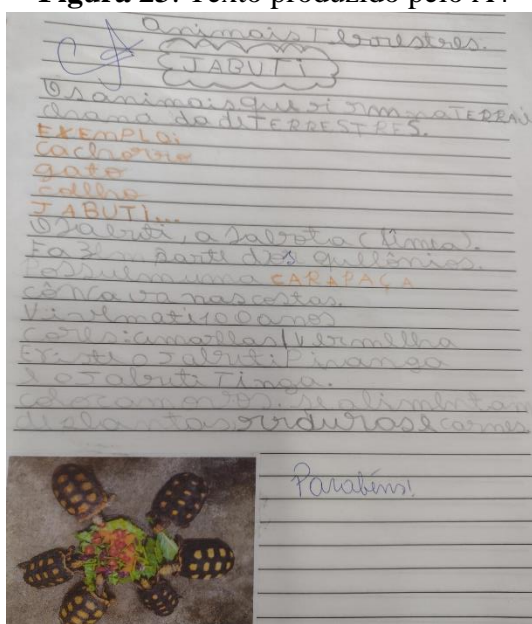 Figura 25: Texto produzido pelo A4
animais Terrestres.
JABUTI
Os animais que vi na TERRA
chama do di TERRESTRES.
EXEMPLO:
Cachorro
gato
coelho
JABUTI...
O Jabuti, a Jabota (fêmea).
Fazem parte dos quelônios.
Possuem uma CARAPAÇA
côncava nas costas.
Vivem ati 100 anos
cores: amarelas / vermelha
Existe o Jabuti Piranga
e o Jabuti Tinga.
colocam ovos. se alimentam
verduras e carnes
Parabéns!